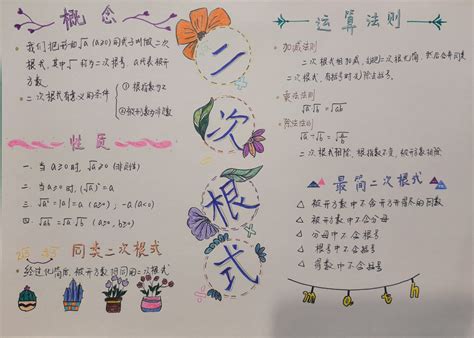 概念
我们把形如√a (a≥0)的式子叫做二次
根式,其中√ 称为二次根号,a代表被开
方数
二次根式有意义的条件
① 根指数为2
②被开方数为非负
性质
一. 当a≥0时, √a≥0 (非负性)
二. 当a≥0时, (√a)²=a
三. √a²=|a|=a (a≥0), -a (a<0)
四. √ab=√a√b (a≥0, b≥0)
同类二次根式
经过化简后,被开方数相同的二次根式
二次根式
运算法则
加减法则
二次根式相加减,先把二次根式化简,然后合并同类
根式,有括号时先去括号
乘法法则
√a√b=√ab
除法法则
二次根式相除,根指数不变,被开方数相除
最简二次根式
被开方数中不含开方开得尽的因数
被开方数中不含分母
分母中不含根号
math